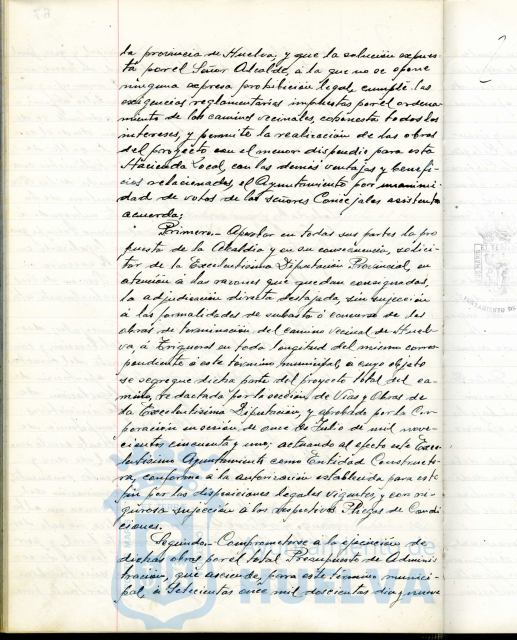 la provincia de Huelva, y que la solución expues-
ta por el Señor Alcalde, a la que no se opone
ninguna expresa prohibición legal, cumple las
exigencias reglamentarias impuestas por el ordena-
miento de los caminos vecinales, cohonesta todos los
intereses, y permite la realización de las obras
del proyecto con el menor dispendio para esta
Hacienda Local, con las demás ventajas y benefi-
cios relacionados, el Ayuntamiento por unanimi-
dad de votos de los señores Concejales asistentes
acuerda:
Primero.- Aprobar en todas sus partes la pro
puesta de la Alcaldía y en su consecuencia, solici-
tar de la Excelentísima Diputación Provincial, en
atención a las razones que quedan consignadas,
la adjudicación directa destajada, sin sujección
a las formalidades de subasta ó concurso de las
obras de terminación del camino vecinal de Huel-
va, a Trigueros en toda longitud del mismo corres-
pondiente a este término municipal, a cuyo objeto
se segregue dicha parte del proyecto total del ca-
mino, redactada por la sección de Vías y Obras de
la Excelentísima Diputación, y aprobado por la Cor-
poración en sesión de once de Julio de mil nove-
cientos cincuenta y uno; actuando al efecto este Exce-
lentísimo Ayuntamiento como Entidad Constructo-
ra, conforme a la autorización establecida para este
fin por las disposiciones legales vigentes, y con ri-
gurosa sujección a los respectivos Pliegos de Condi
ciones.
Segundo.- Comprometerse a la ejecución de
dichas obras por el total Presupuesto de Adminis-
tración, que asciende, para este término munici-
pal, a Setecientas once mil doscientas diez y nueve
Ayuntamiento de
HUELVA